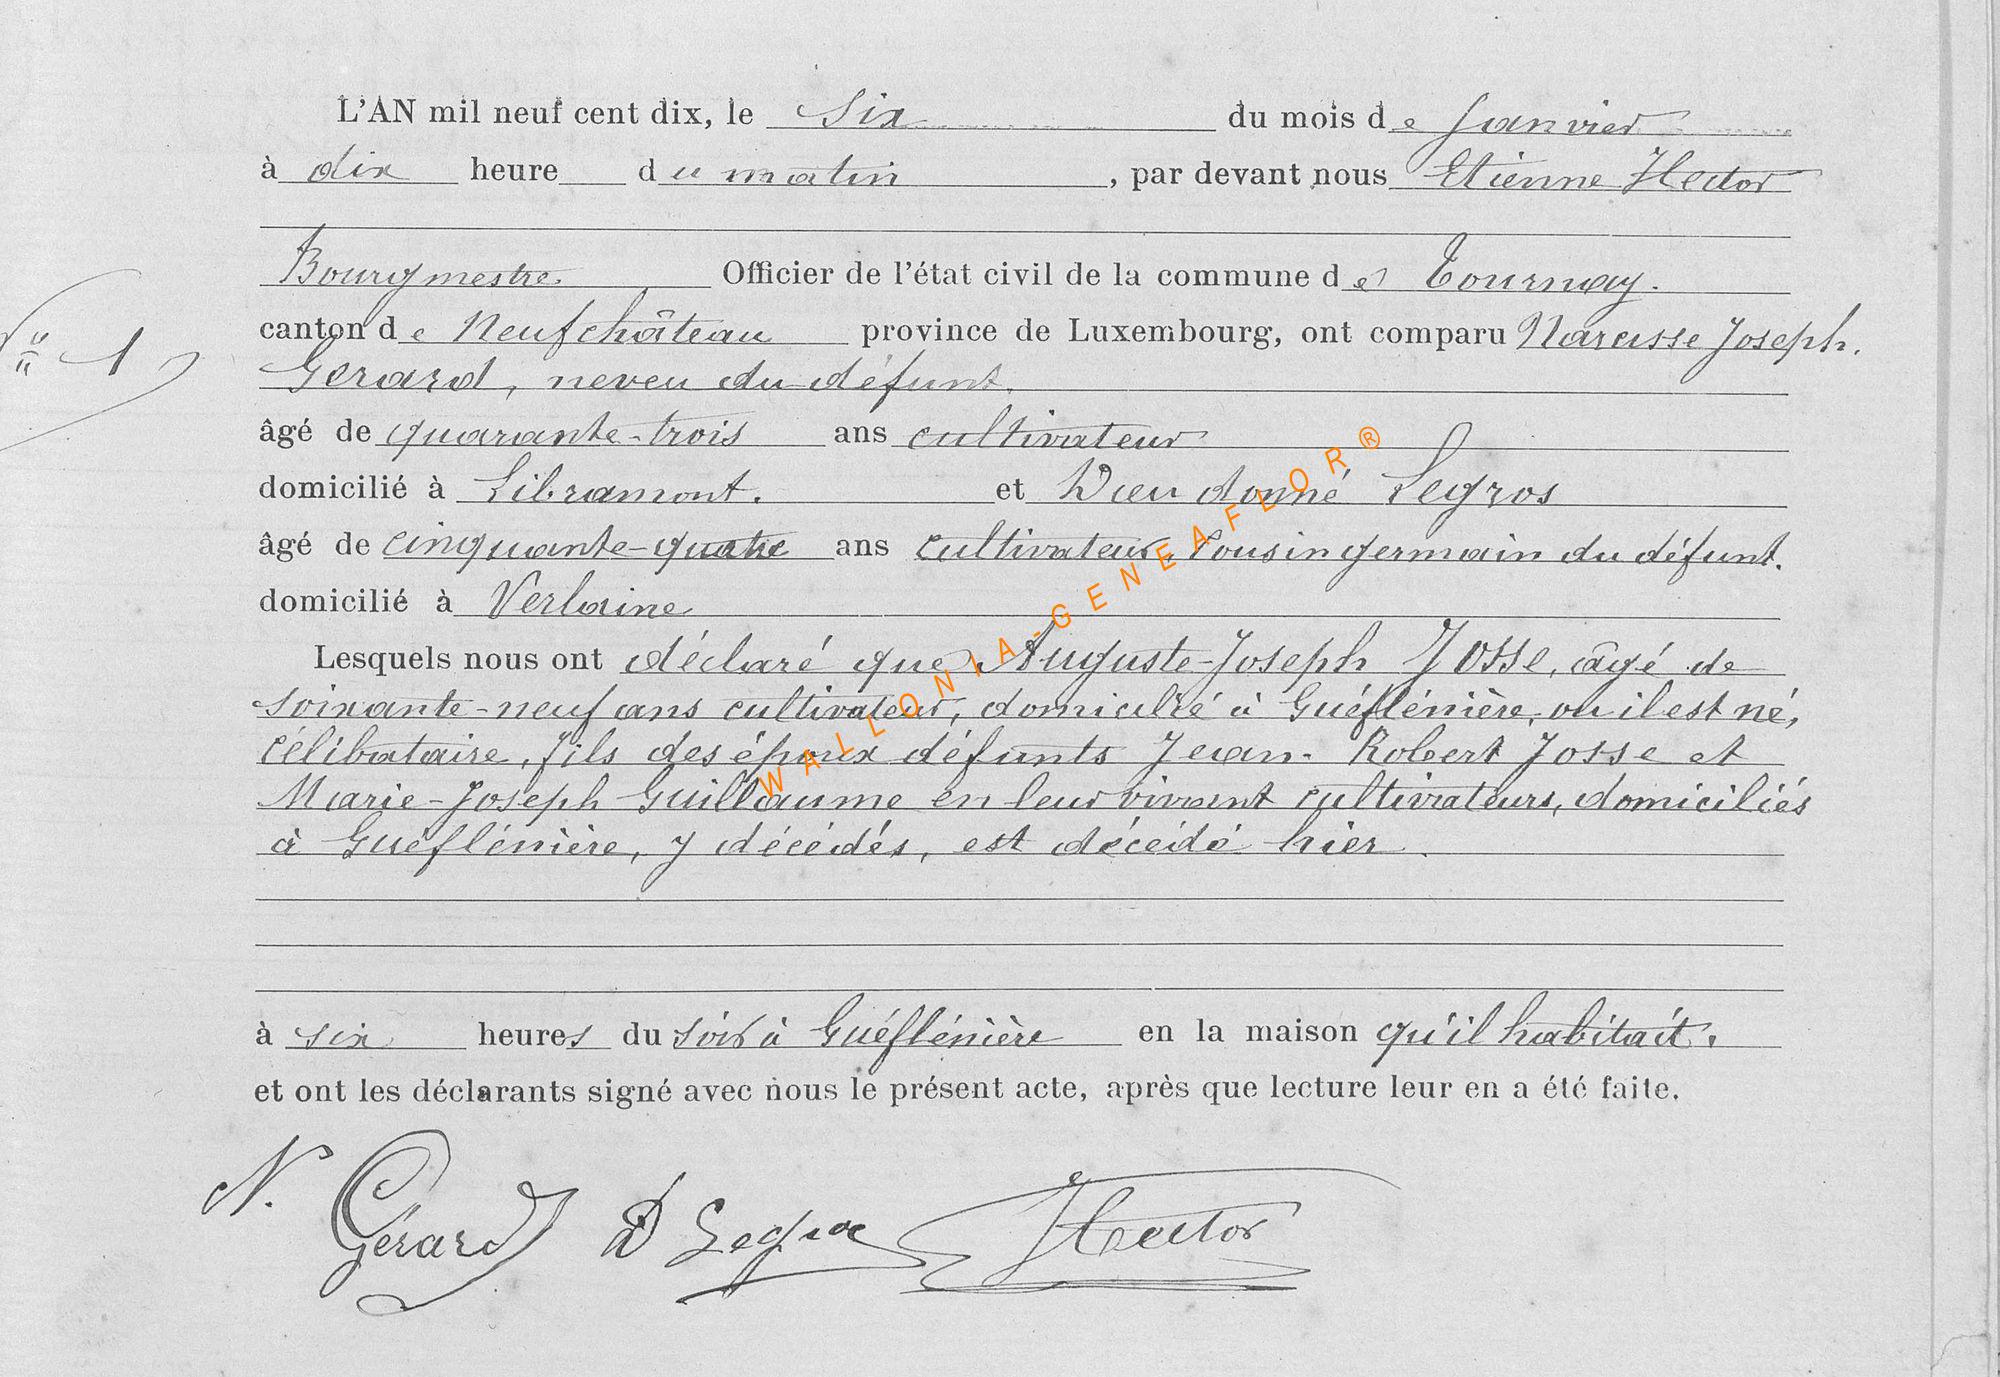 L'AN mil neuf cent dix, le six du mois de Janvier
à dix heure du matin, par devant nous Etienne Hector
Bourgmestre Officier de l'état civil de la commune de Tournay.
canton de Neufchâteau province de Luxembourg, ont comparu Narcisse Joseph.
N° 1
Gérard, neveu du défunt.
âgé de quarante-trois ans cultivateur
domicilié à Libramont. et Dieudonné Legros
âgé de cinquante-quatre ans cultivateur, Cousin germain du défunt.
domicilié à Verlaine
Lesquels nous ont déclaré que Auguste-Joseph Josse, âgé de
soixante-neuf ans cultivateur, domicilié à Guéflénière, ou il est né,
célibataire, fils des époux défunts Jean-Robert Josse et
Marie-Joseph Guillaume en leur vivant cultivateurs, domiciliés
à Guéflénière, y décédés, est décédé hier.
à six heures du soir à Guéflénière en la maison qu'il habitait.
et ont les déclarants signé avec nous le présent acte, après que lecture leur en a été faite.
N. Gérard D Legros Hector
WALLONIA-GENEAFLOR®